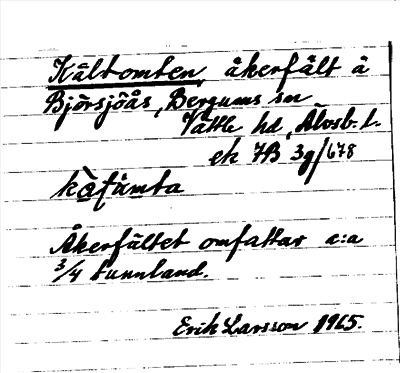 Kåltomten, åkerfält å
Björsjöås, Bergums sn
Vättle hd, Älvsb. l.
ek 7B 3g/678
kå̀ʈåmta
Åkerfältet omfattar c:a
3/4 tunnland.
Erik Larsson 1965.